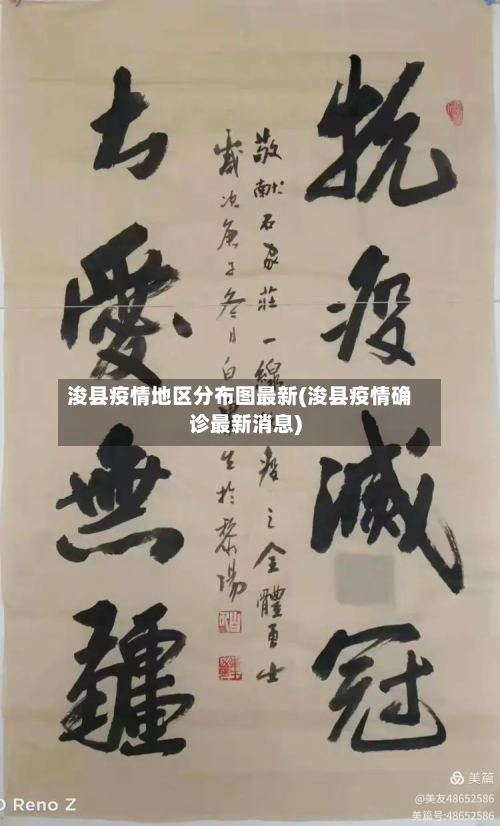 抗疫滅冠
敬献石家莊一線疫之全體勇士
歲次庚子冬月白生於黎陽
大愛無疆
浚县疫情地区分布图最新(浚县疫情确
诊最新消息)
Reno Z
美篇
@美友48652586
美篇号:48652586